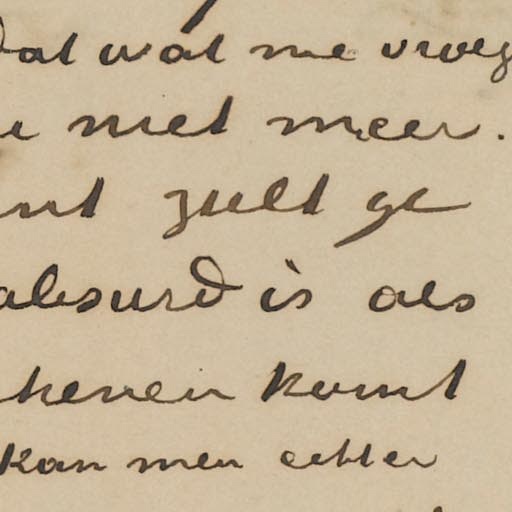 dat wat me vroeg
u niet meer.
nt zult ge
absurd is als
henen komt
kan men echter